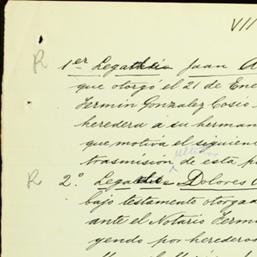 VII
R 1er Legatario Juan A
que otorgó el 21 de Ene
Fermin Gonzalez Cosio
heredera á su herman
que motiva el siguiente
trasmisión de esta p
R 2º Legatario Dolores
bajo testamento otorga
ante el Notario Fermi
yendo por herederos